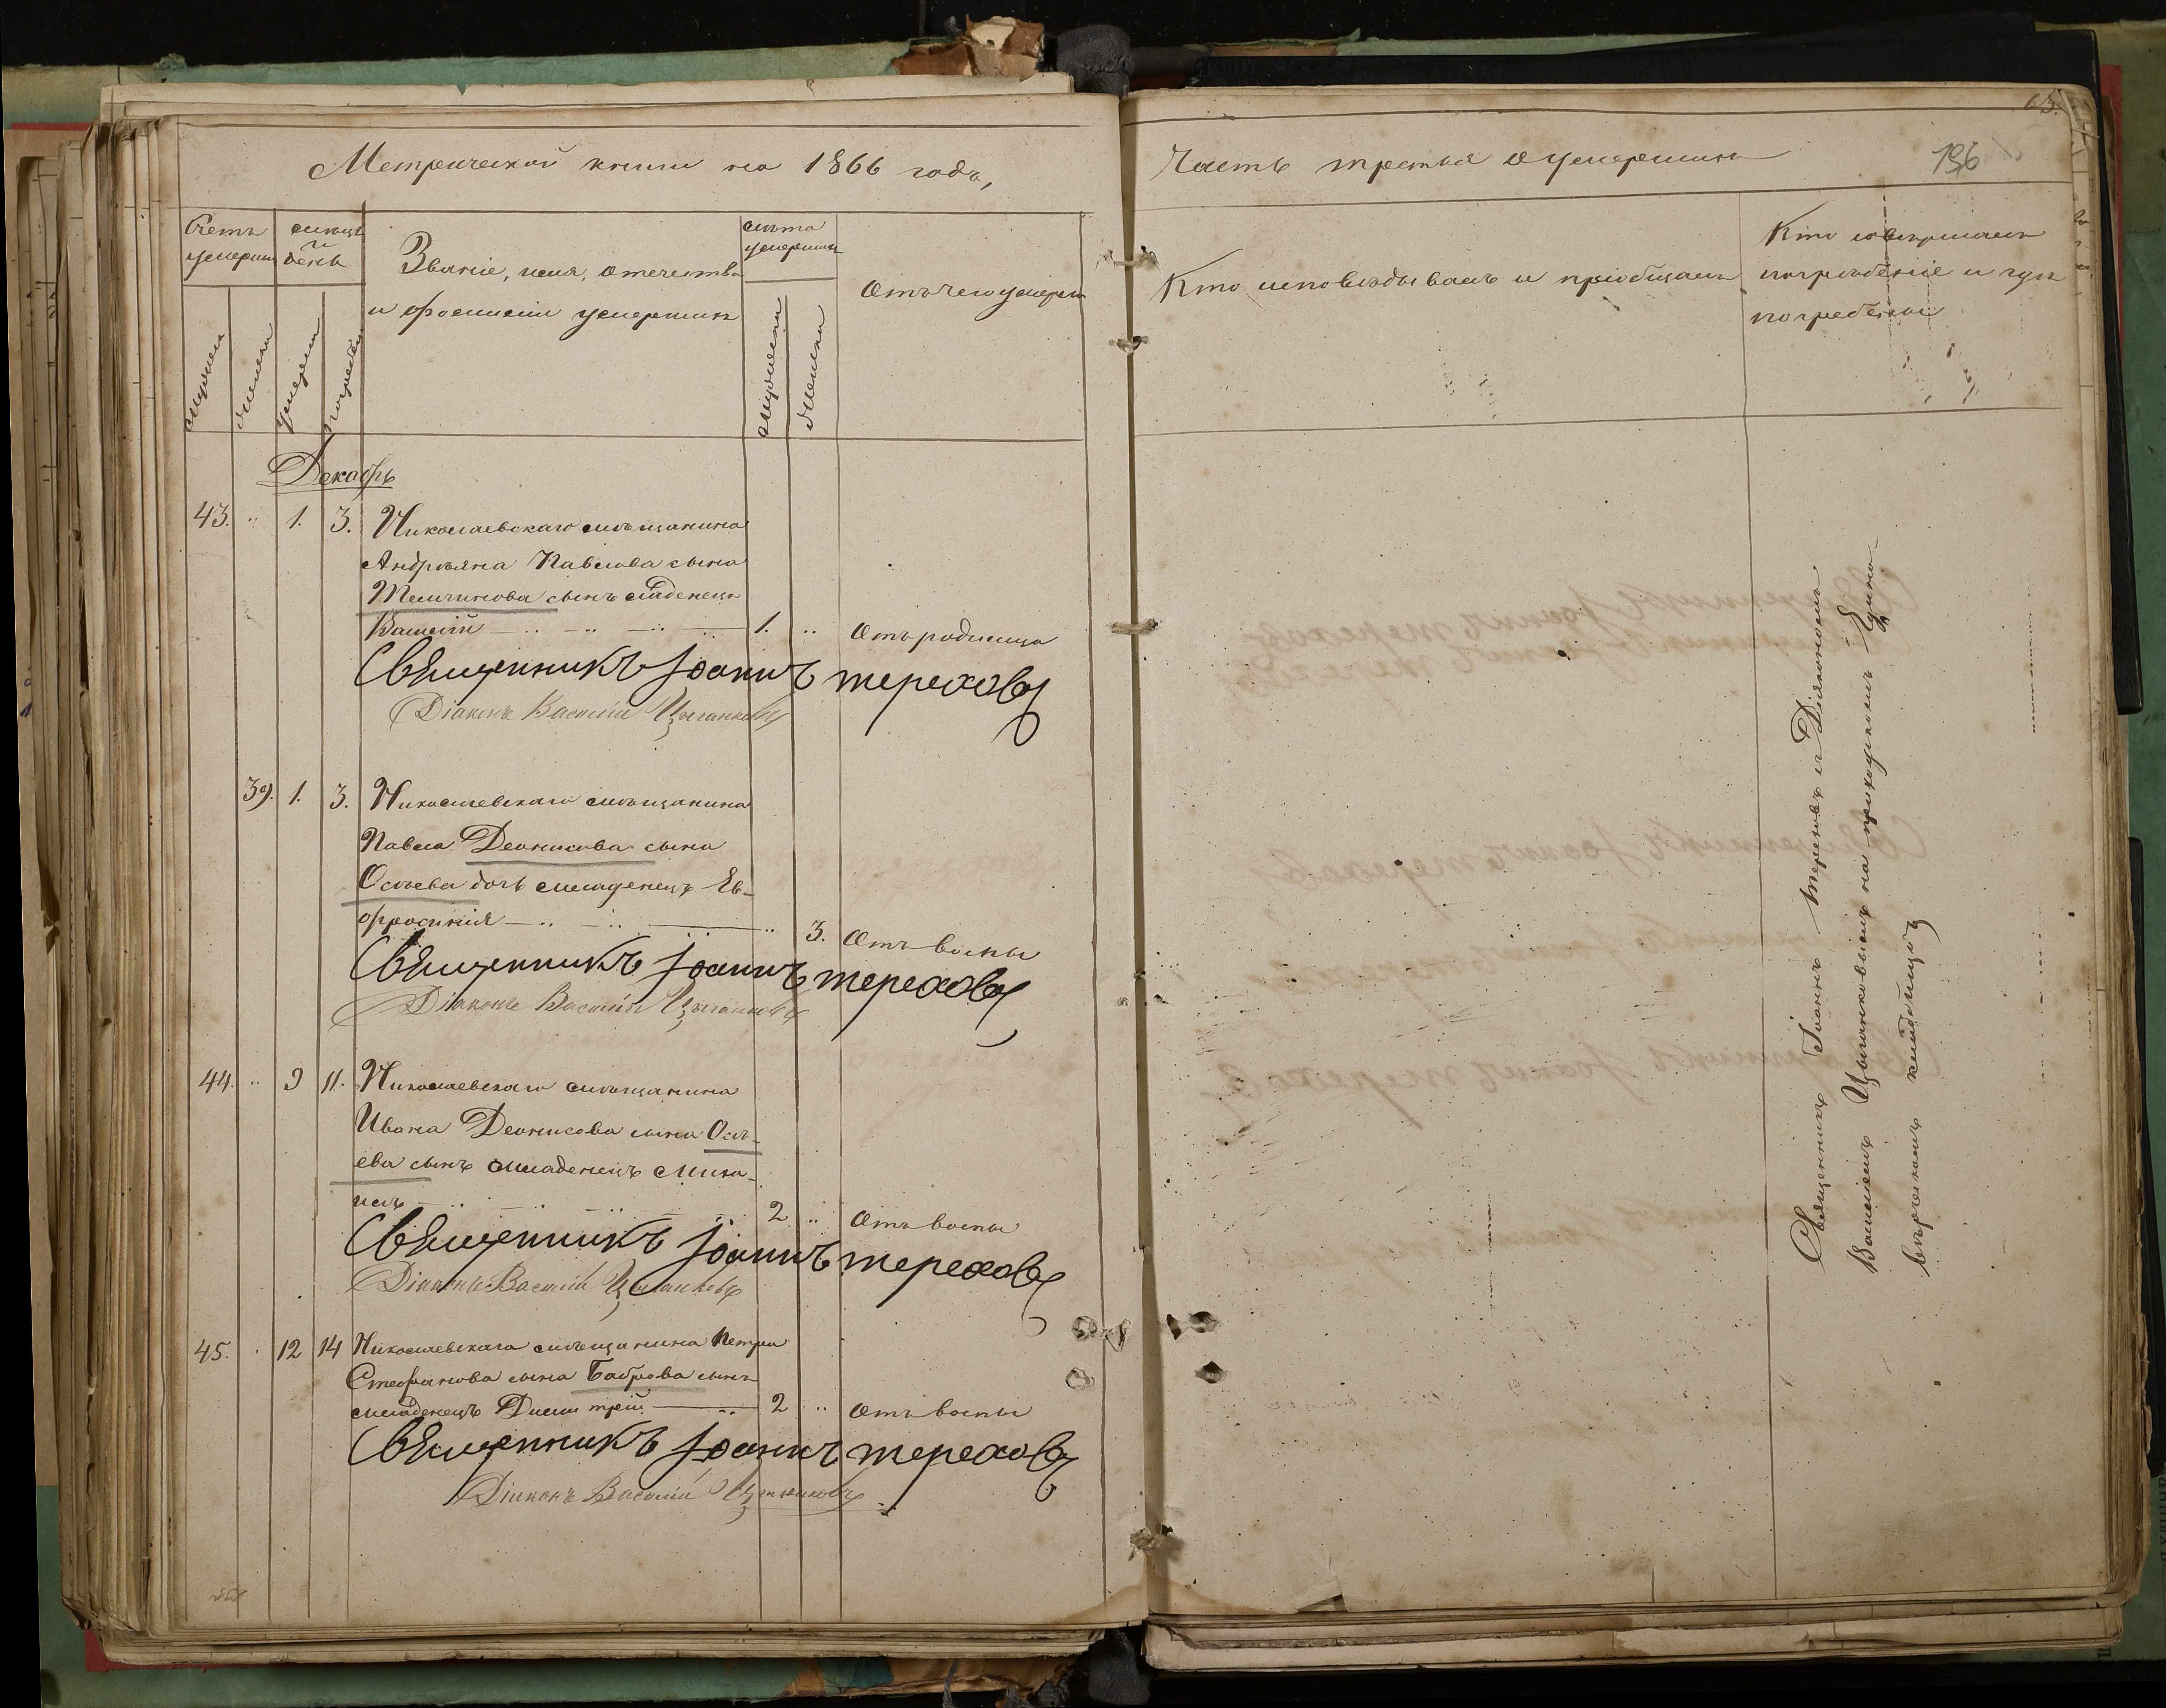 Метрической книги на 1866 годъ,
Счетъ умершихъ
мужеска
женска
мѣсяцъ и день
умерли
погребены
Званіе, имя, отечество
и фамилія умершихъ
Лѣта умершихъ
мужеска
женска
Отъ чего умерли
Декабрь
43. 1. 3. Николаевскаго мѣщанина
Андріяна Павлова сына
сынъ младенецъ
Василій 1. Отъ родимца
Священникъ Іоаннъ Тереховъ
Діаконъ Василій Цыганковъ
39. 1. 3. Николаевскаго мѣщанина
Павла Деонисова сына
Осьева дочь младенецъ Ев-
фросинія 3. Отъ воспы
Священникъ Іоаннъ Тереховъ
Діаконъ Василій Цыганковъ
44. 9 11. Николаевскаго мѣщанина
Ивана Деонисова сына Ось-
ева сынъ младенецъ Миха-
илъ 2 Отъ воспы
Священникъ Іоаннъ Тереховъ
Діаконъ Василій Цыганковъ
45. 12 14 Николаевскаго мѣщанина Петра
Стефанова сына Баброва сынъ
младенецъ Димитрій 2 Отъ воспы
Священникъ Іоаннъ Тереховъ
Діаконъ Василій Цыганковъ
65.
Часть третья о умершихъ
196
Кто исповѣдывалъ и пріобщалъ
Кто совершалъ
погребеніе и гдѣ
погребены
Священникъ Іоаннъ Тереховъ съ Діакономъ
Василіемъ Цыганковымъ на приходскомъ Едино-
вѣрческомъ кладбищѣ